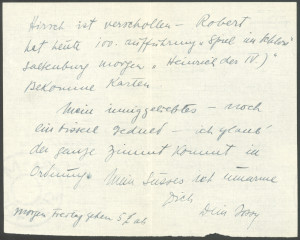 Hirsch ist verschollen – Robert
hat heute 100. Aufführung „Spiel im Schloss"
Salkenburg morgen „Heinrich der IV.)"
Bekomme Karten
Mein inniggeliebtes – noch
ein bissel Geduld – ich glaub'
der ganze Zimmt kommt in
Ordnung. Mein Süsses ich umarme
Dich
Dein
morgen Freitag gehen 5 £ ab